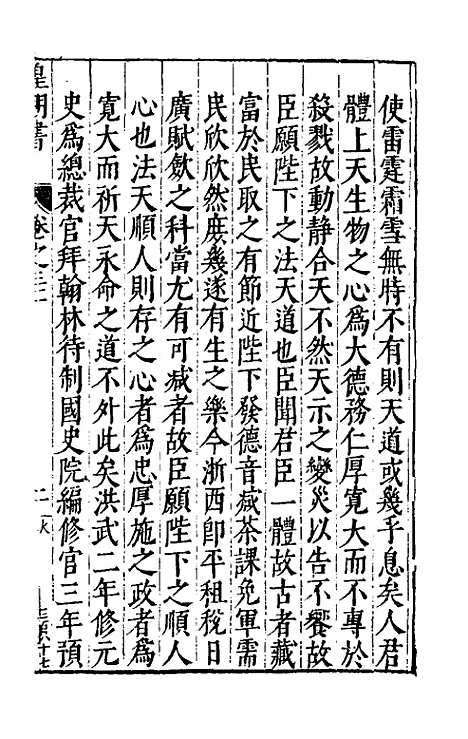 使雷霆霜雪無時不有則天道或幾乎息矣人君
體上天生物之心爲大德務仁厚寛大而不專於
殺戮故動静合天不然天示之變災以告不饗故
臣願陛下之法天道也臣聞君臣一體故古者藏
富於民取之有節近陛下發德音减茶課免軍需
民欣欣然庻幾遂有生之樂今浙西卽平租稅日
廣賦斂之科當尤有可减者故臣願陛下之順人
心也法天順人則存之心者爲忠厚施之政者爲
寛大而祈天永命之道不外此矣洪武二年修元
史爲總裁官拜翰林待制國史院編修官三年預
皇明書
卷之三二